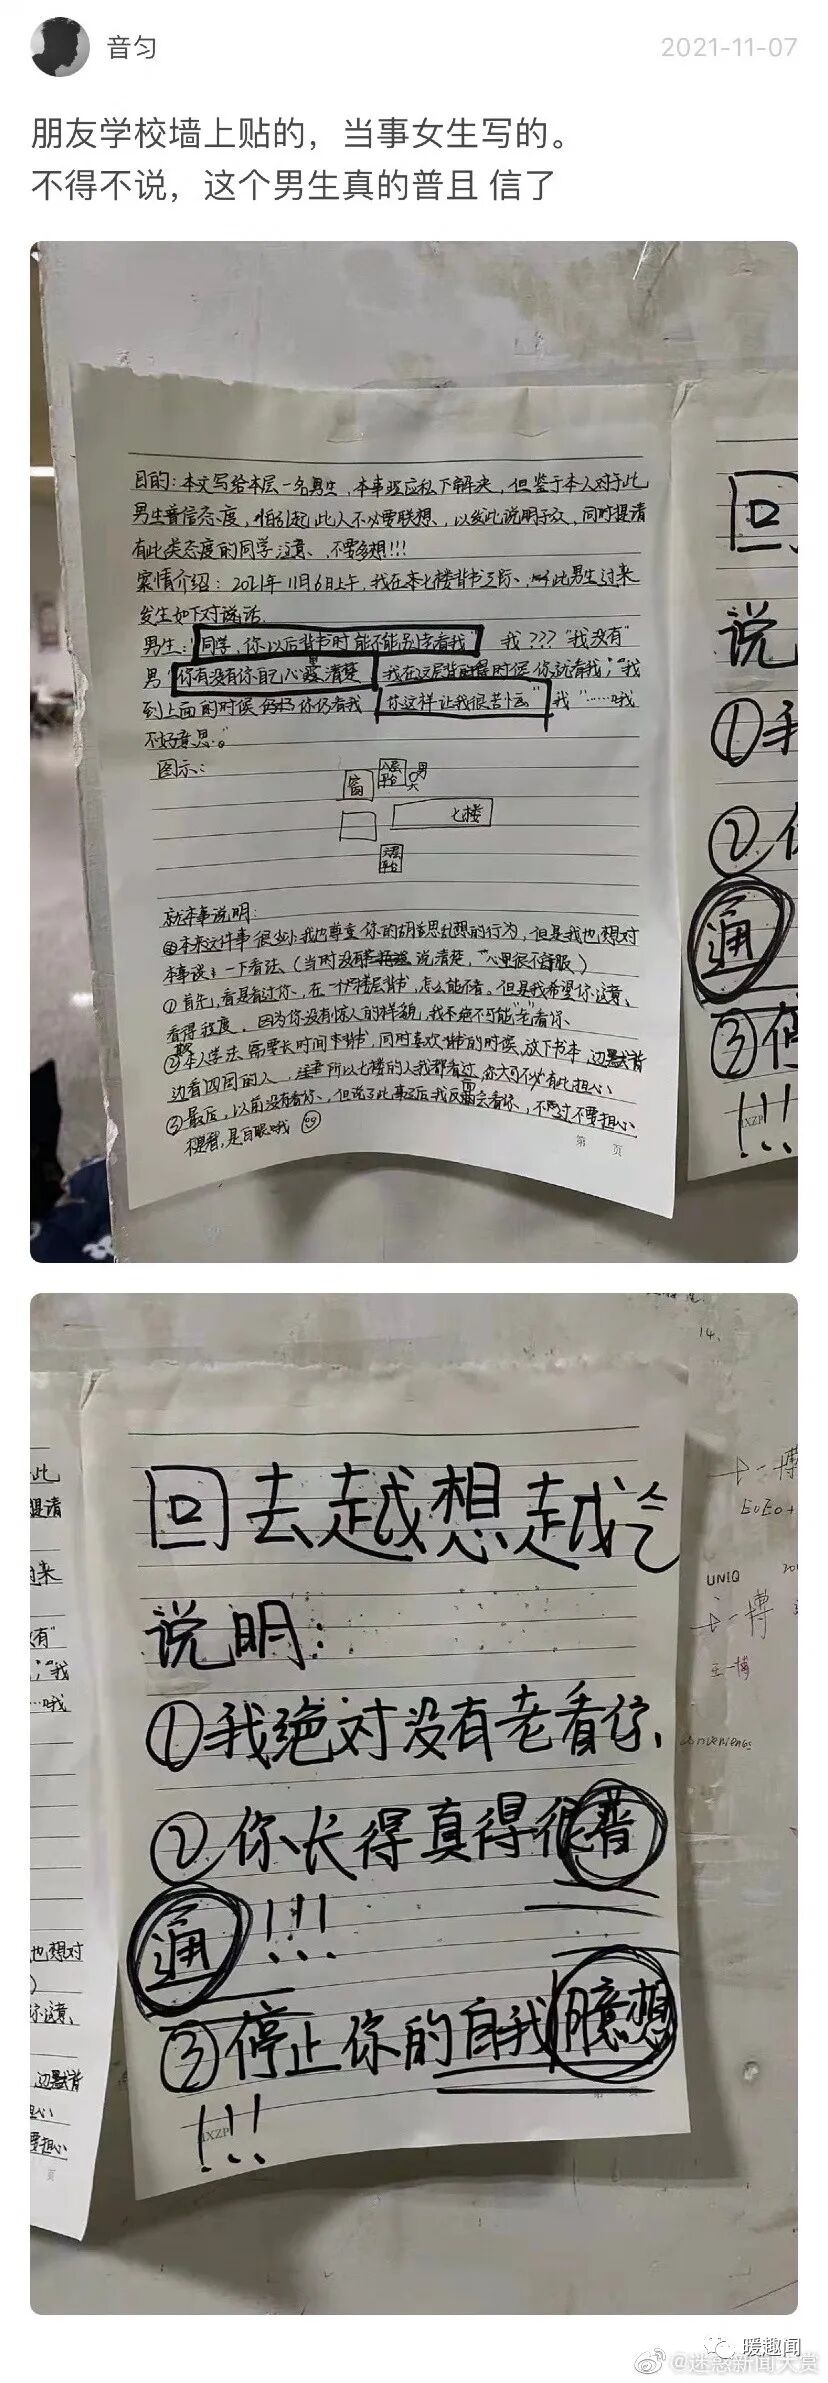 音匀
2021-11-07
朋友学校墙上贴的，当事女生写的。
不得不说，这个男生真的普且 信了
目的：本文写给本层一名男生，本事应私下解决，但鉴于本人对于此
男生普信态度，怕引起此人不必要联想，以发此说明于众，同时提请
有此类态度的同学注意、不要多想!!!
案情介绍：2021年11月6日上午，我在本七楼背书之际、此男生过来
发生如下对话
男生："同学，你以后背书时能不能别老看我" 我？？？"我没有"
男"你有没有你自己心里清楚 我在这层背的时候你就看我；"我
到上面的时候你仍看我 你这样让我很苦恼" 我"……哦
不好意思。
图示：
窗
平台
男
七楼
平台
就本事说明：
本来这件事很小，我也尊重你的胡思乱想的行为，但是我也想对
本事谈一下看法（当时没有说清楚，心里很不舒服）
①首先，看是看过你、在一个楼层背书，怎么能不看。但是我希望你注意、
看得程度，因为你没有惊人的样貌，我不可能"老"看你
②本人学法需要长时间背书，同时喜欢背书的时候，放下书本，边默背
边看四周的人，所以七楼的人我都看过，你大可不必有此担心
③最后，以前没有看你、但说了此事之后我反而会看你、不过不要担心
是白眼哦
第 页
回
说
①我
②你
通
③停
!!!
回去越想越气
说明：
①我绝对没有老看你、
②你长得真得很普
通!!!
③停止你的自我臆想
!!!
14、
一博
UNIQ
一博
王一博
暖趣闻
@迷惑新闻大赏